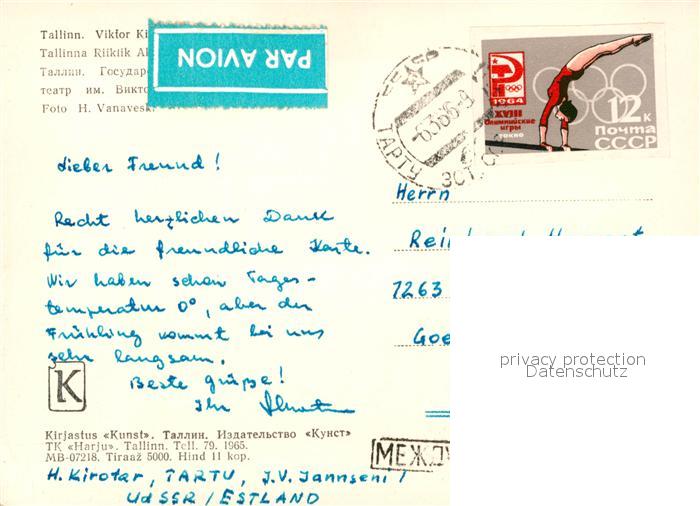 Tallinn. Viktor Ki
Tallinna Riiklik A
Таллин. Государс
театр им. Викто
Foto H. Vanaves
PAR AVION
ТАРТУ
-6366-9
ЭСТ. СС
1964
XVIII
Олимпийские
игры
ТОКИО
12 к
Почта
СССР
Lieber Freund!
Recht herzlichen Dank
für die freundliche Karte.
Wir haben schon Tages-
temperatur 0°, aber der
Frühling kommt bei uns
sehr langsam.
Beste grüße!
Ihr
K
Herrn
Rei
7263
Goe
privacy protection
Datenschutz
Kirjastus «Kunst». Таллин. Издательство «Кунст»
TK «Harju». Tallinn. Tell. 79. 1965.
MB-07218. Tiraaž 5000. Hind 11 kop.
МЕЖДУ
H. Kirotar, TARTU, J.V. Jannseni 1
UdSSR / ESTLAND